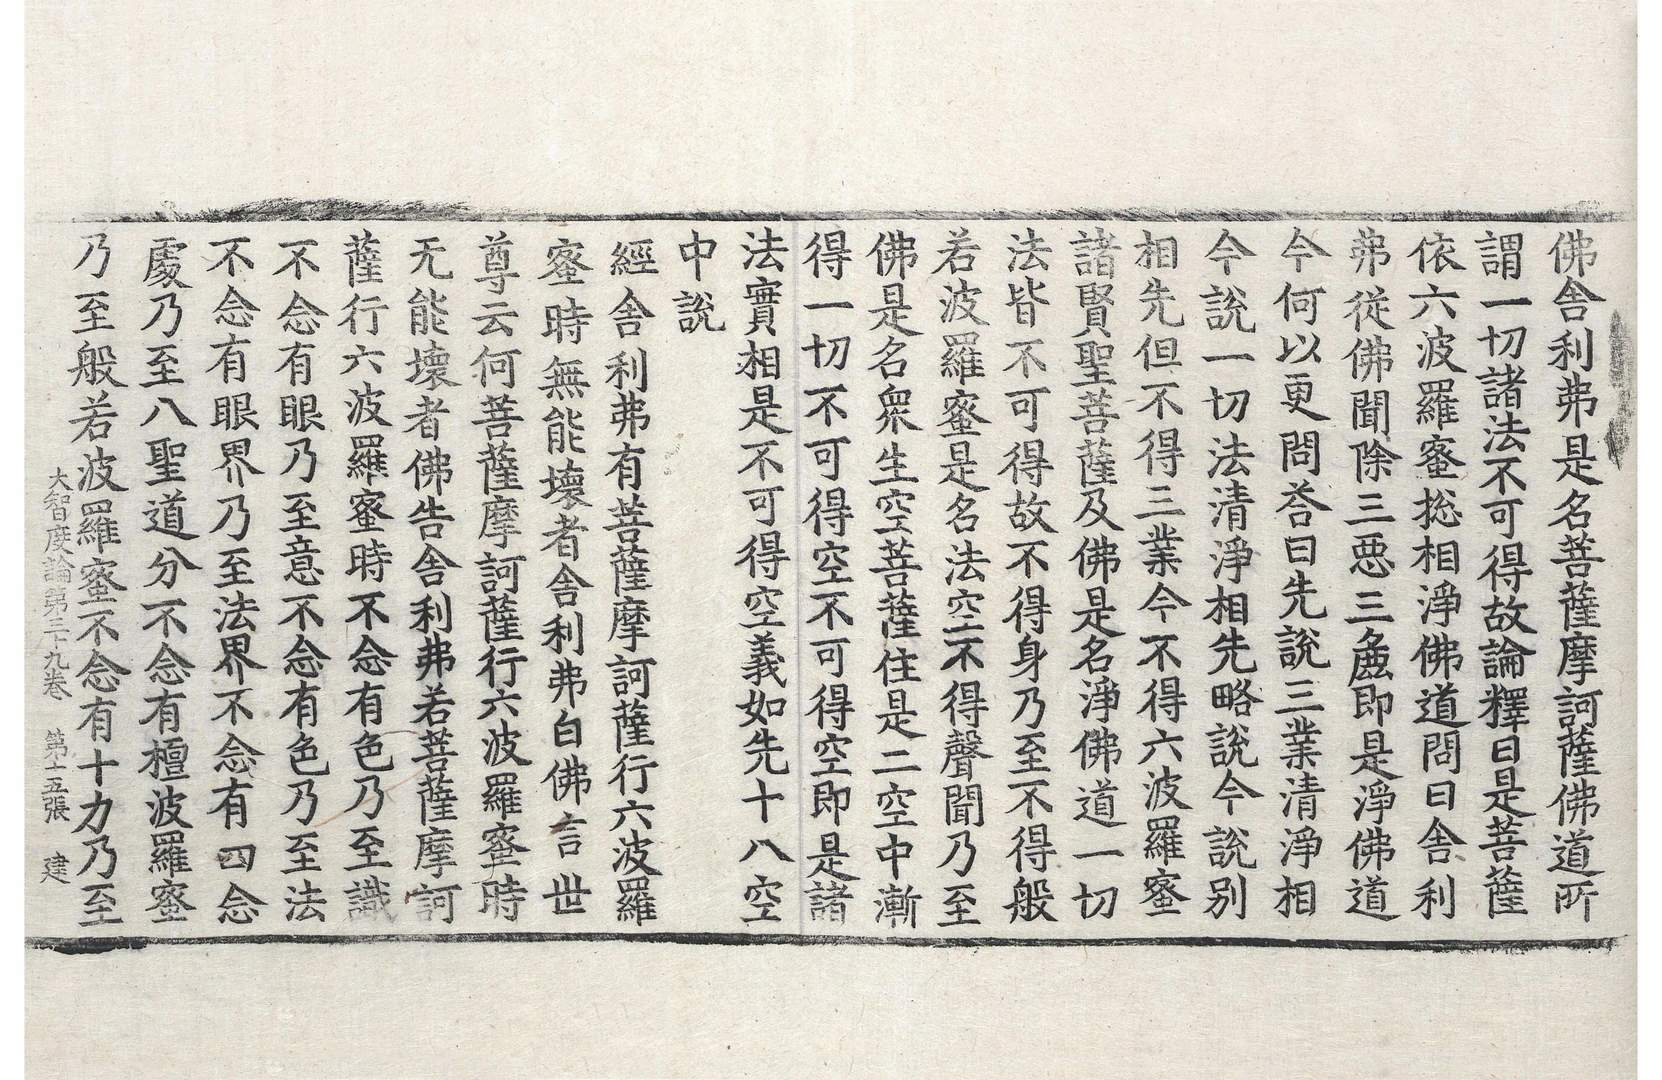 佛舍利弗是名菩薩摩訶薩佛道所
謂一切諸法不可得故論釋曰是菩薩
依六波羅蜜捴相淨佛道問曰舍利
弗從佛聞除三惡三麁即是淨佛道
今何以更問荅曰先說三業清淨相
今說一切法清淨相先略說今說別
相先但不得三業今不得六波羅蜜
諸賢聖菩薩及佛是名淨佛道一切
法皆不可得故不得身乃至不得般
若波羅蜜是名法空不得聲聞乃至
佛是名衆生空菩薩住是二空中漸
得一切不可得空不可得空即是諸
法實相是不可得空義如先十八空
中說
經舍利弗有菩薩摩訶薩行六波羅
蜜時無能壞者舍利弗白佛言世
尊云何菩薩摩訶薩行六波羅蜜時
无能壞者佛告舍利弗若菩薩摩訶
薩行六波羅蜜時不念有色乃至識
不念有眼乃至意不念有色乃至法
不念有眼界乃至法界不念有四念
處乃至八聖道分不念有檀波羅蜜
乃至般若波羅蜜不念有十力乃至
大智度論第三十九卷 第十五張 建